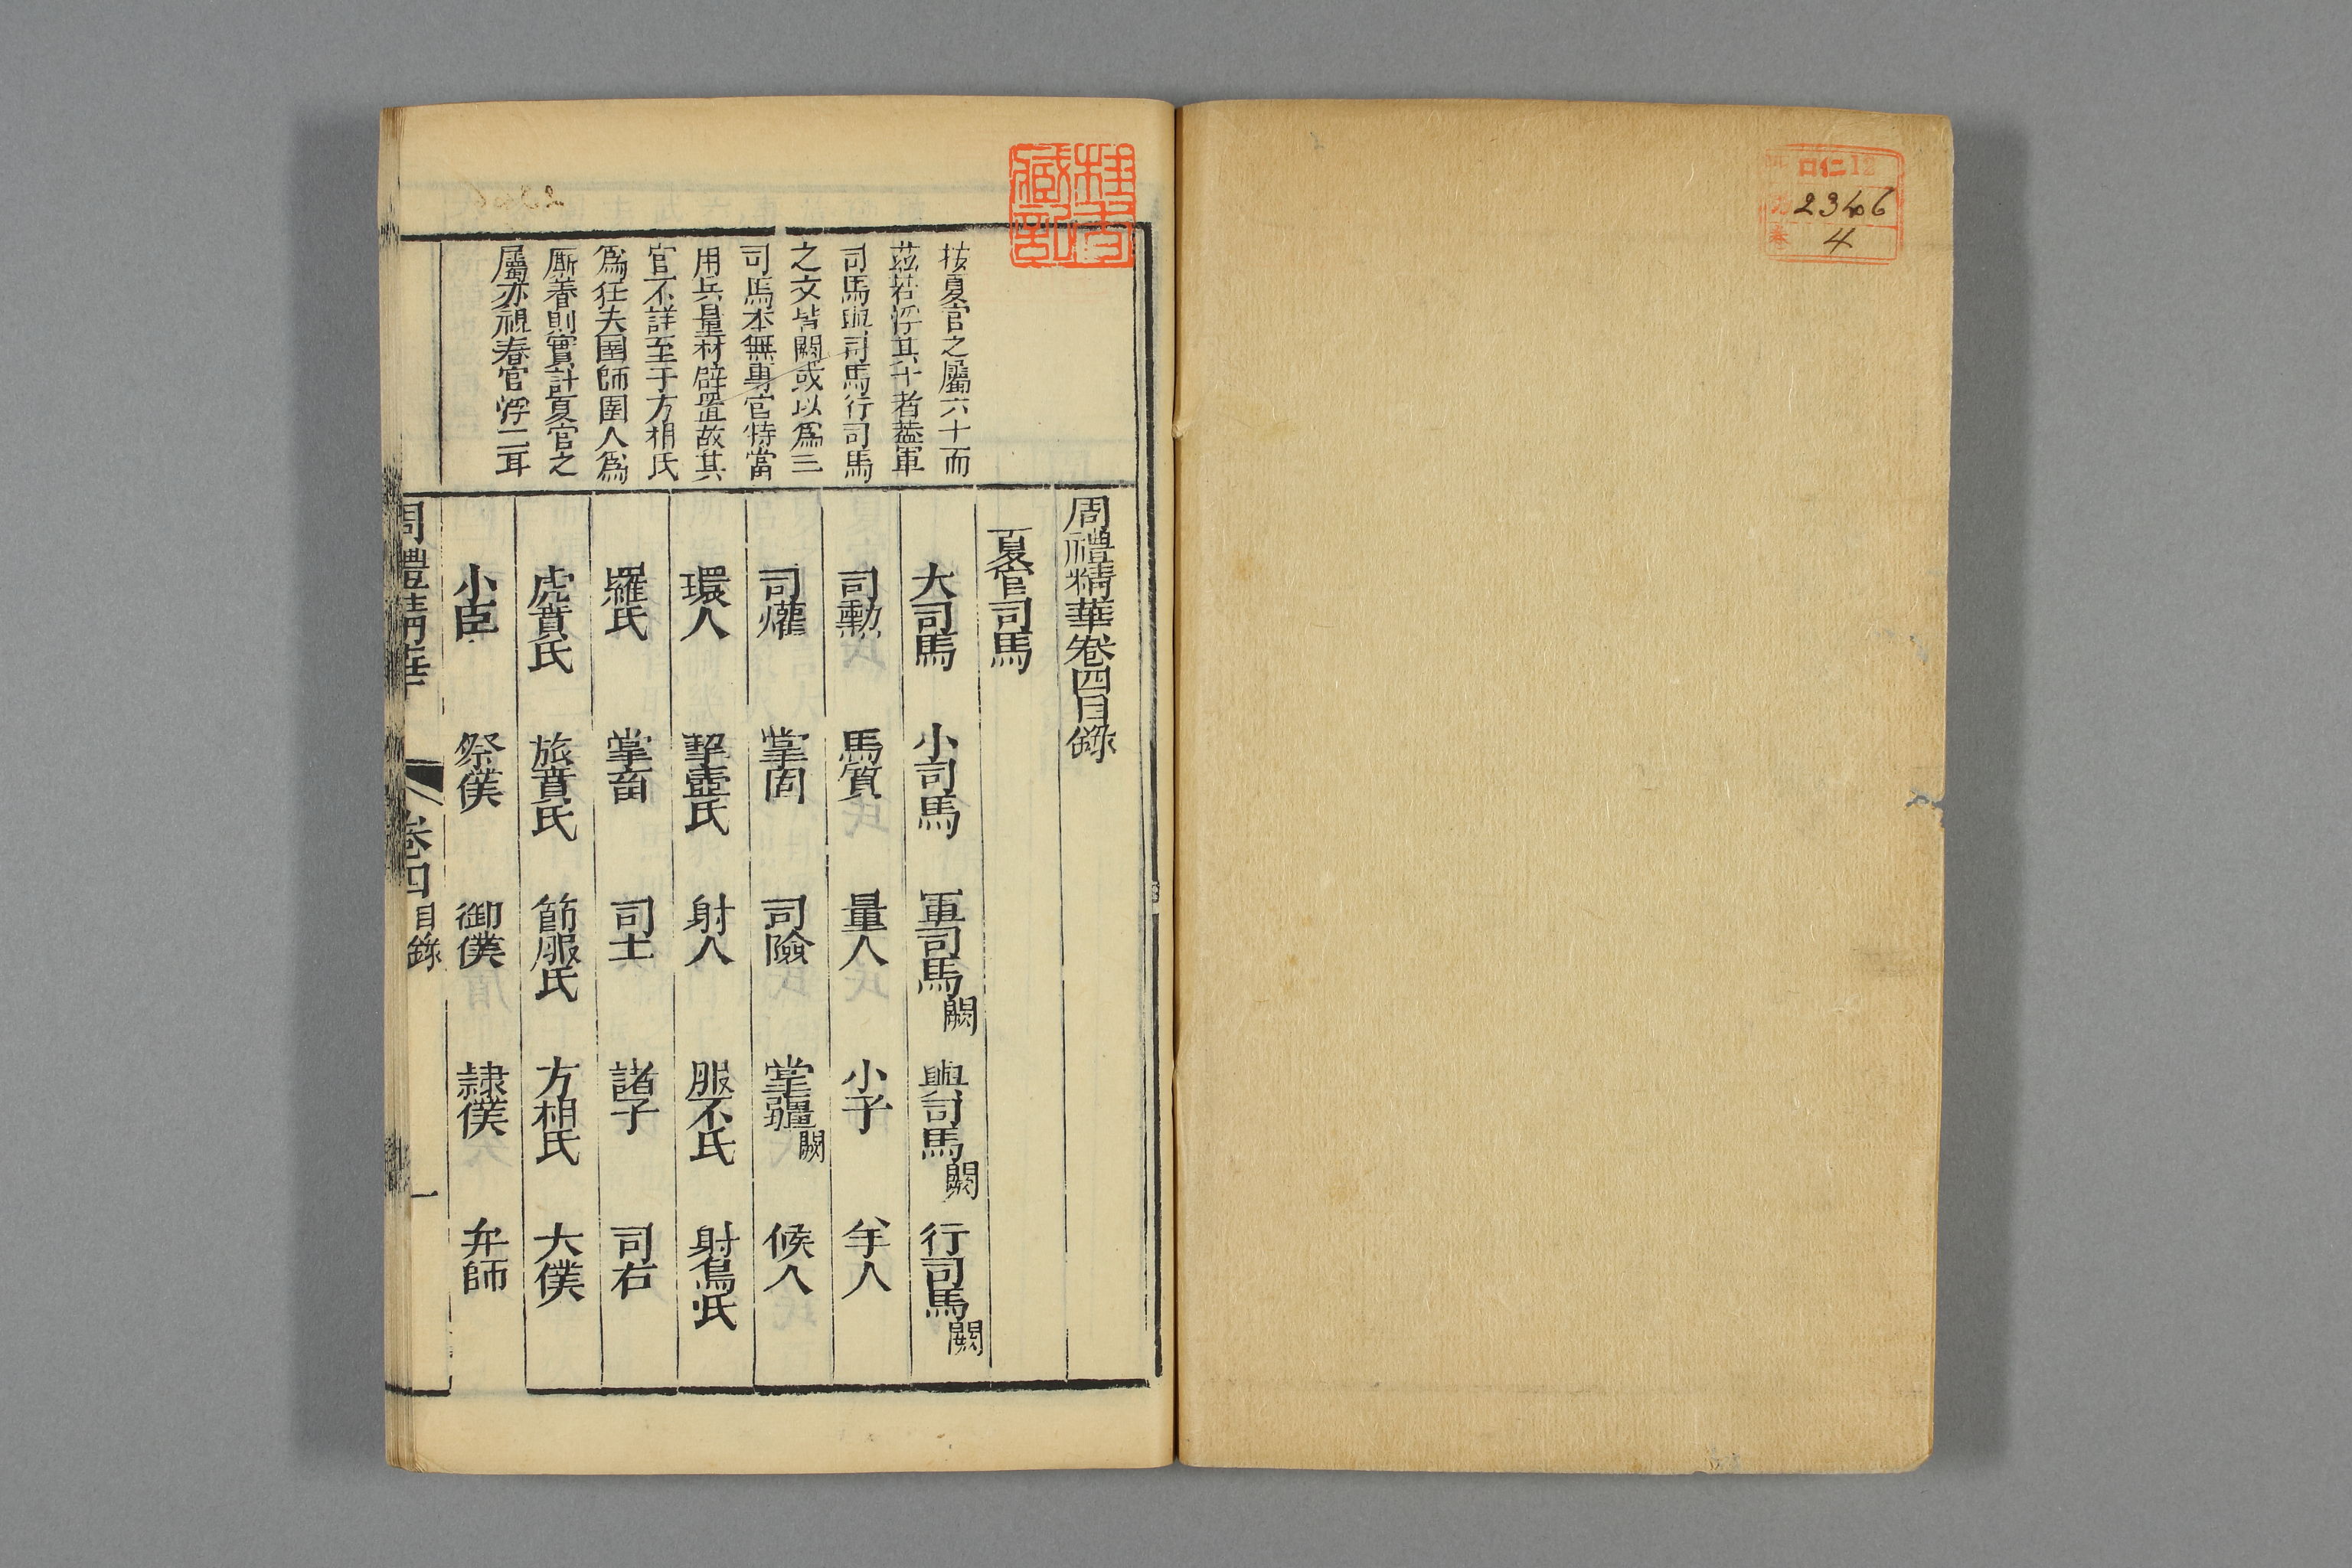 口仁12
2346
4
按夏官之屬六十而
茲若浮其十者蓋軍
司馬與司馬行司馬
之文皆闕或以爲三
司馬本無專官特當
用兵量材辟置故其
官不詳至于方相氏
爲狂夫圉師圉人爲
厮養則實計夏官之
屬亦視春官浮二耳
周禮精華卷四目錄
夏官司馬
大司馬 小司馬 軍司馬闕 輿司馬闕 行司馬闕
司勳 馬質 量人 小子 羊人
司爟 掌固 司險 掌疆闕 候人
環人 挈壼氏 射人 服不氏 射鳥氏
羅氏 掌畜 司士 諸子 司右
虎賁氏 旅賁氏 節服氏 方相氏 大僕
小臣 祭僕 御僕 隸僕 弁師
周禮精華 卷四 目錄 一